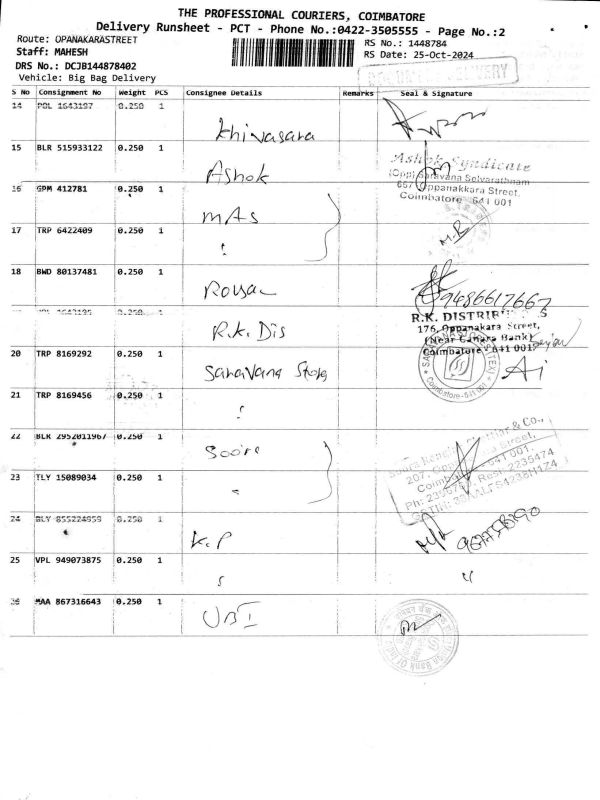 THE PROFESSIONAL COURIERS, COIMBATORE
Delivery Runsheet - PCT - Phone No.:0422-3505555 - Page No.:2
Route: OPANAKARASTREET
RS No.: 1448784
Staff: MAHESH
RS Date: 25-Oct-2024
DRS No.: DCJB144878402
DELIVERY
Vehicle: Big Bag Delivery
S No Consignment No Weight PCS Consignee Details Remarks Seal & Signature
14 POL 1643197 0.250 1
Khivasara
15 BLR 515933122 0.250 1
Ashok
Ashok Syndicate
(Opp) Saravana Selvarathnam
657 Oppanakkara Street,
Coimbatore 641 001
16 GPM 412781 0.250 1
MAS
17 TRP 6422409 0.250 1
M.B
18 BWD 80137481 0.250 1
9486617667
1643195 0.250 1
R.K. Dis
R.K. DISTRIB
176, Oppanakara Street,
(Near Canara Bank)
Coimbatore - 641 001
20 TRP 8169292 0.250 1
Saravana Stores
Coimbatore-641 001
21 TRP 8169456 0.250 1
22 BLR 2952011967 0.250 1
& Co.,
207, Street,
641 001.
Resi: 2239474
23 TLY 15089034 0.250 1
24 0.250 1
K.P
25 VPL 949073875 0.250 1
"
26 MAA 867316643 0.250 1
UBI